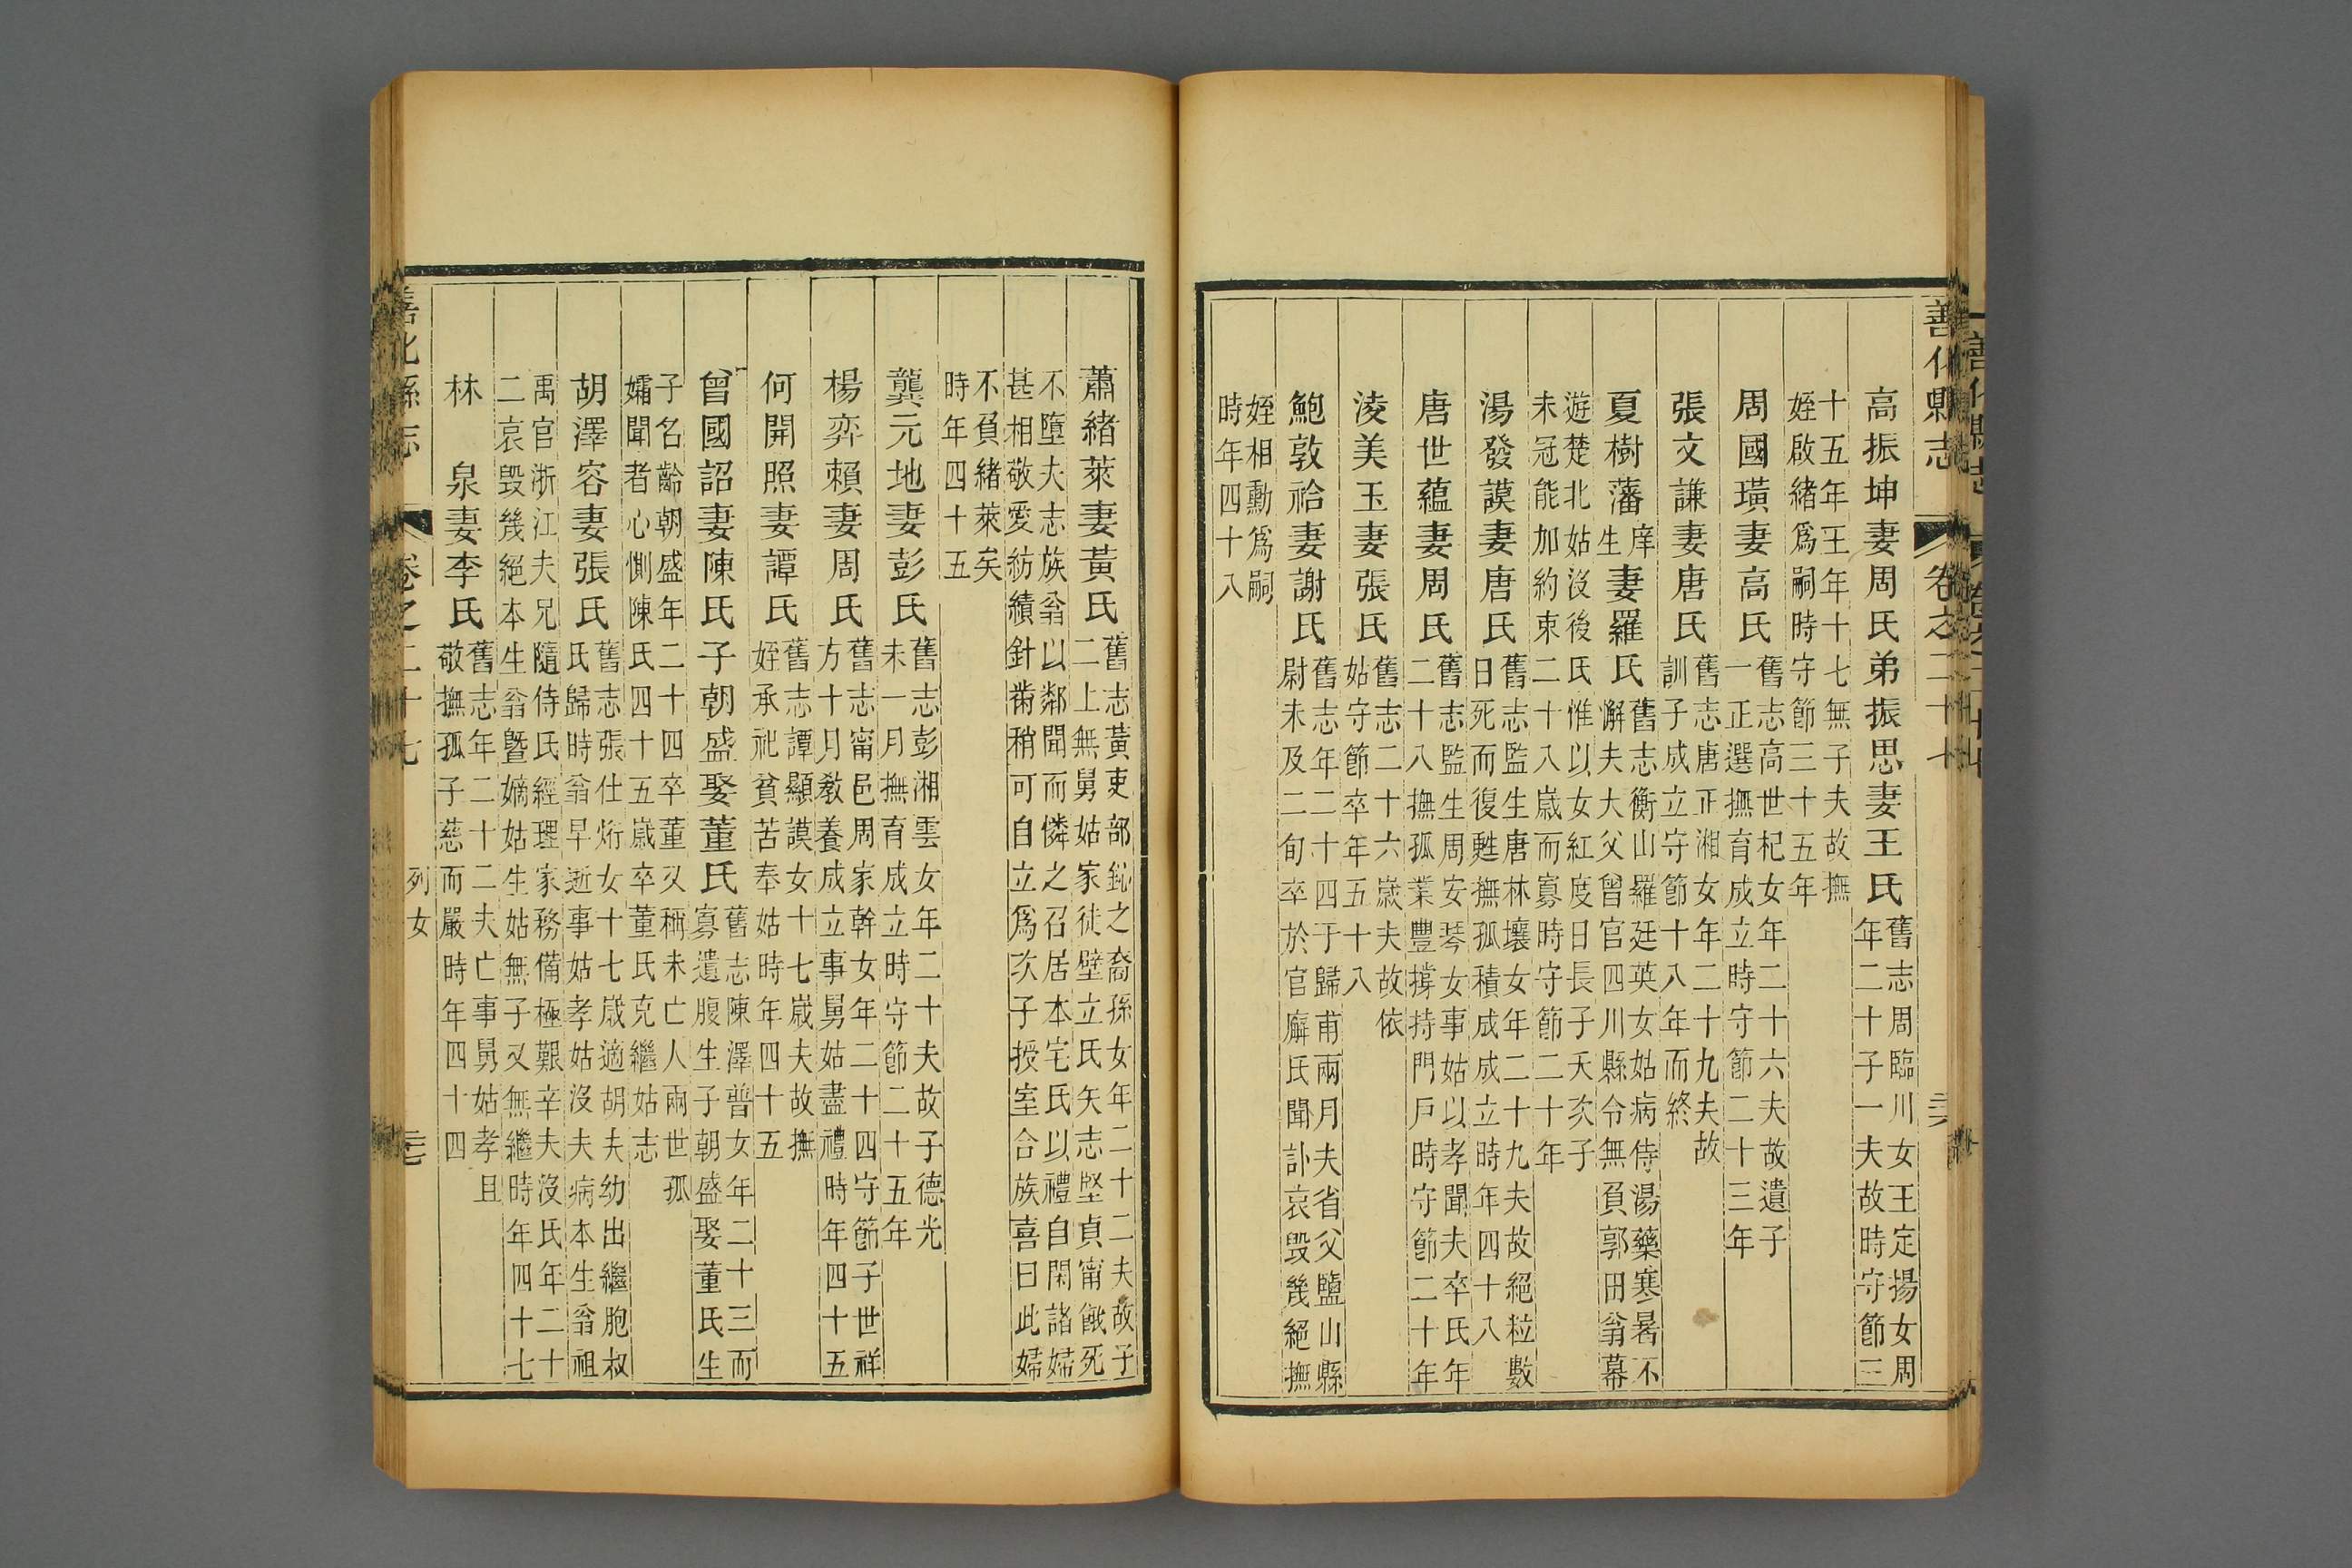 善化縣志
卷之二十七
高振坤妻周氏弟振思妻王氏
舊志周臨川女王定揚女周
年二十子一夫故時守節三
十五年王年十七無子夫故撫
姪啟緒爲嗣時守節三十五年
周國璜妻高氏
舊志高世杞女年二十六夫故遺子
一正選撫育成立時守節二十三年
張文謙妻唐氏
舊志唐正湘女年二十九夫故
訓子成立守節十八年而終
夏樹藩庠生妻羅氏
舊志衡山羅廷英女姑病侍湯藥寒暑不
懈夫大父曾官四川縣令無負郭田翁幕
遊楚北姑沒後氏惟以女紅度日長子夭次子
未冠能加約束二十八歲而寡時守節二十年
湯發謨妻唐氏
舊志監生唐林壤女年二十九夫故絕粒數
日死而復甦撫孤積成成立時年四十八
唐世蘊妻周氏
舊志監生周安琴女事姑以孝聞夫卒氏年
二十八撫孤業豐撐持門戶時守節二十年
淩美玉妻張氏
舊志二十六歲夫故依
姑守節卒年五十八
鮑敦祫妻謝氏
舊志年二十四于歸甫兩月夫省父鹽山縣
尉未及二旬卒於官廨氏聞訃哀毀幾絕撫
姪相勳爲嗣
時年四十八
蕭緒萊妻黃氏
舊志黃吏部鈗之裔孫女年二十二夫故子
二上無舅姑家徒壁立氏矢志堅貞甯餓死
不墮夫志族翁以鄰聞而憐之召居本宅氏以禮自閑諸婦
甚相敬愛紡績針黹稍可自立爲次子授室合族喜曰此婦
不負緒萊矣
時年四十五
龔元地妻彭氏
舊志彭湘雲女年二十夫故子德光
未一月撫育成立時守節二十五年
楊弈賴妻周氏
舊志甯邑周家幹女年二十四守節子世祥
方十月教養成立事舅姑盡禮時年四十五
何開照妻譚氏
舊志譚顯謨女十七歲夫故撫
姪承祀貧苦奉姑時年四十五
曾國詔妻陳氏子朝盛娶董氏
舊志陳澤普女年二十三而
寡遺腹生子朝盛娶董氏生
子名齡朝盛年二十四卒董又稱未亡人兩世孤
孀聞者心惻陳氏四十五歲卒董氏克繼姑志
胡澤容妻張氏
舊志張仕炘女十七歲適胡夫幼出繼胞叔
氏歸時翁早逝事姑孝姑沒夫病本生翁祖
禹官浙江夫兄隨侍氏經理家務備極艱辛夫沒氏年二十
二哀毀幾絕本生翁曁嫡姑生姑無子又無繼時年四十七
林泉妻李氏
舊志年二十二夫亡事舅姑孝且
敬撫孤子慈而嚴時年四十四
善化縣志
卷之二十七
列女